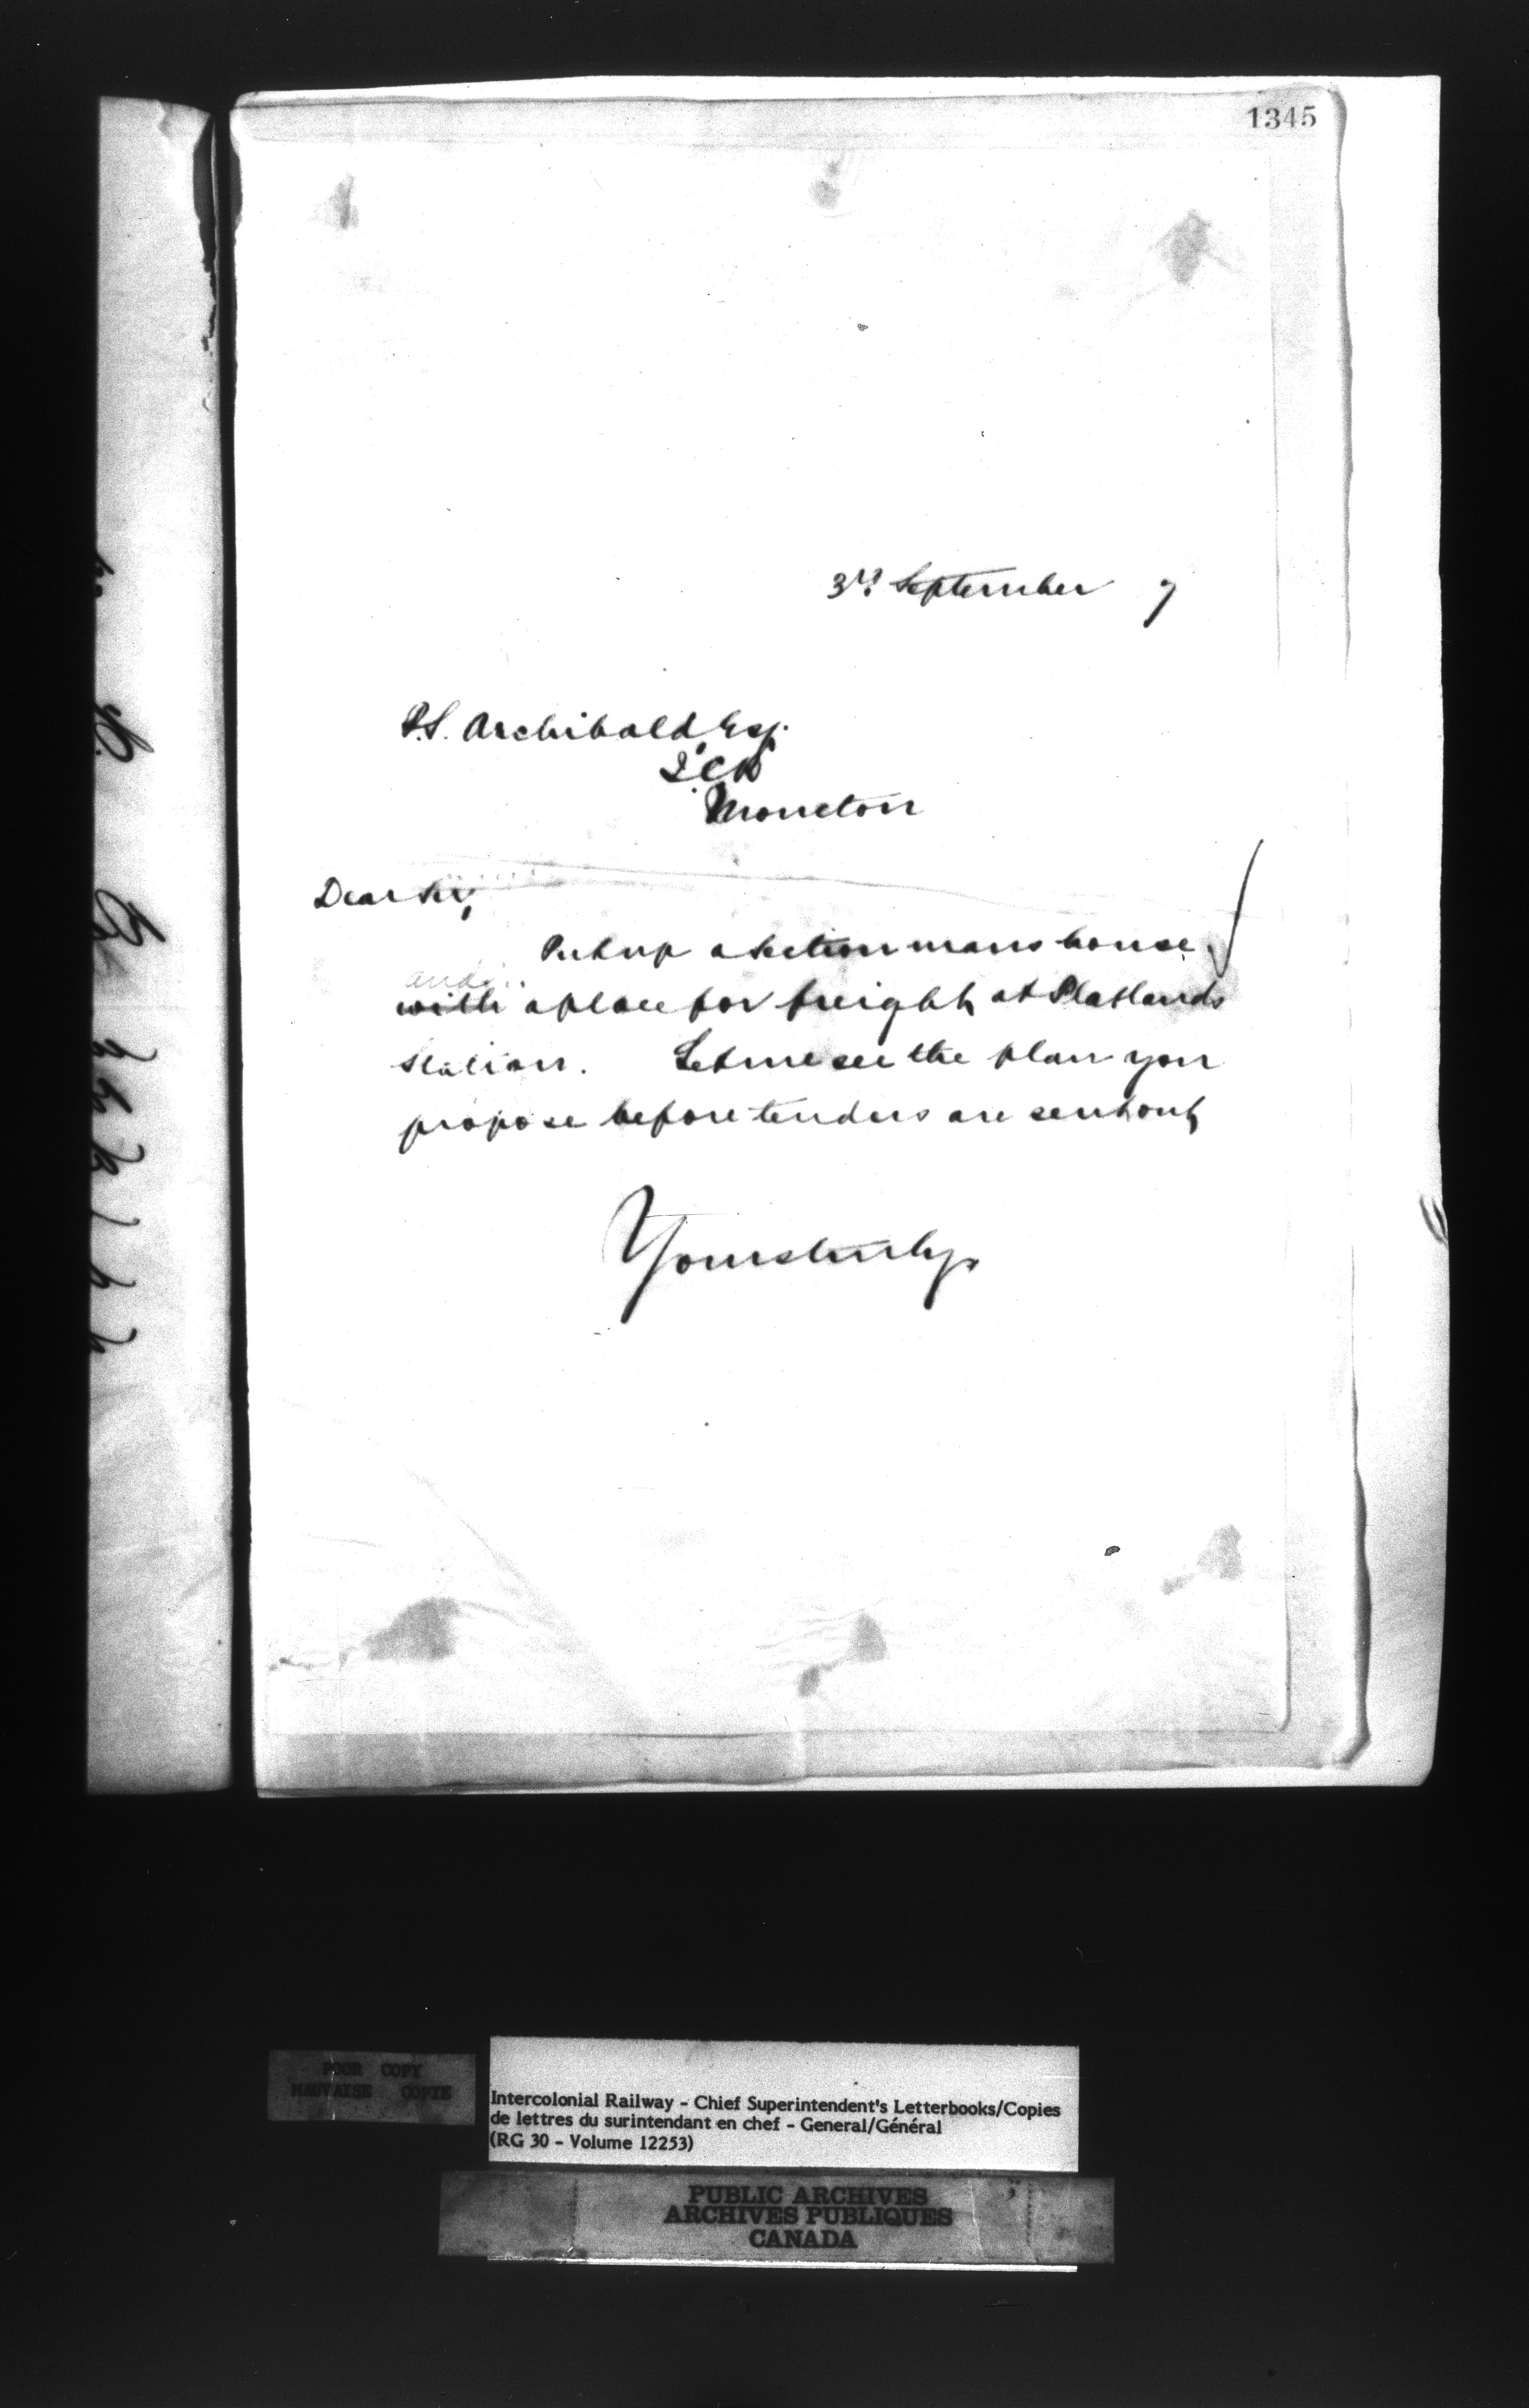 1345
3rd September 7
P.S. Archibald Esq.
I C R
Moncton
Dear Sir,
Put up a section mans house
and
with a place for freight at Flatlands
Station. Let me see the plan you
propose before tenders are sent out
Yours truly
POOR COPY
MAUVAISE COPIE
Intercolonial Railway - Chief Superintendent's Letterbooks/Copies
de lettres du surintendant en chef - General/Général
(RG 30 - Volume 12253)
PUBLIC ARCHIVES
ARCHIVES PUBLIQUES
CANADA